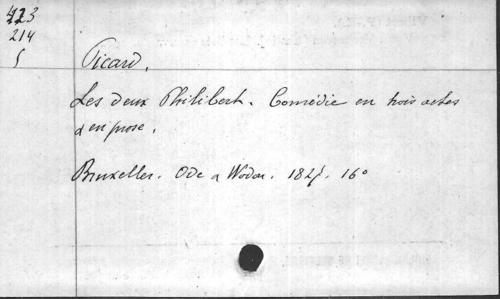 423
214
5
Picard.
Les deux Philibert. Comédie en trois actes
& en prose.
Bruxelles. Ode & Wodon. 16°